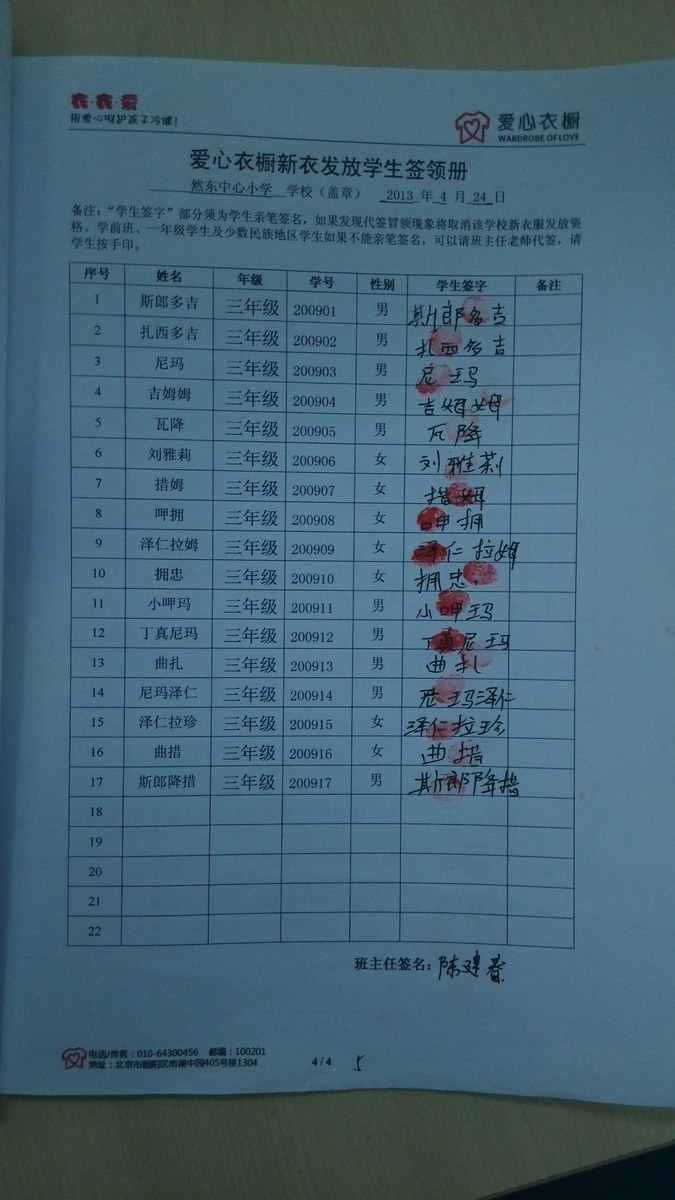 衣·衣·爱
用爱心呵护孩子冷暖!
爱心衣橱
WARDROBE OF LOVE
爱心衣橱新衣发放学生签领册
然东中心小学 学校（盖章） 2013 年 4 月 24 日
备注：“学生签字”部分须为学生亲笔签名，如果发现代签冒领现象将取消该学校新衣服发放资
格、学前班、一年级学生及少数民族地区学生如果不能亲笔签名，可以请班主任老师代签，请
学生按手印。
序号 姓名 年级 学号 性别 学生签字 备注
1 斯郎多吉 三年级 200901 男 斯郎多吉
2 扎西多吉 三年级 200902 男 扎西多吉
3 尼玛 三年级 200903 男 尼玛
4 吉姆姆 三年级 200904 男 吉姆姆
5 瓦降 三年级 200905 男 瓦降
6 刘雅莉 三年级 200906 女 刘雅莉
7 措姆 三年级 200907 女 措姆
8 呷拥 三年级 200908 女 呷拥
9 泽仁拉姆 三年级 200909 女 泽仁拉姆
10 拥忠 三年级 200910 女 拥忠
11 小呷玛 三年级 200911 男 小呷玛
12 丁真尼玛 三年级 200912 男 丁真尼玛
13 曲扎 三年级 200913 男 曲扎
14 尼玛泽仁 三年级 200914 男 尼玛泽仁
15 泽仁拉珍 三年级 200915 女 泽仁拉珍
16 曲措 三年级 200916 女 曲措
17 斯郎降措 三年级 200917 男 斯郎降措
18
19
20
21
22
班主任签名：陈建春
电话/传真：010-64300456 邮编：100201
地址：北京市朝阳区南湖中园405号楼1304
4 / 4 5